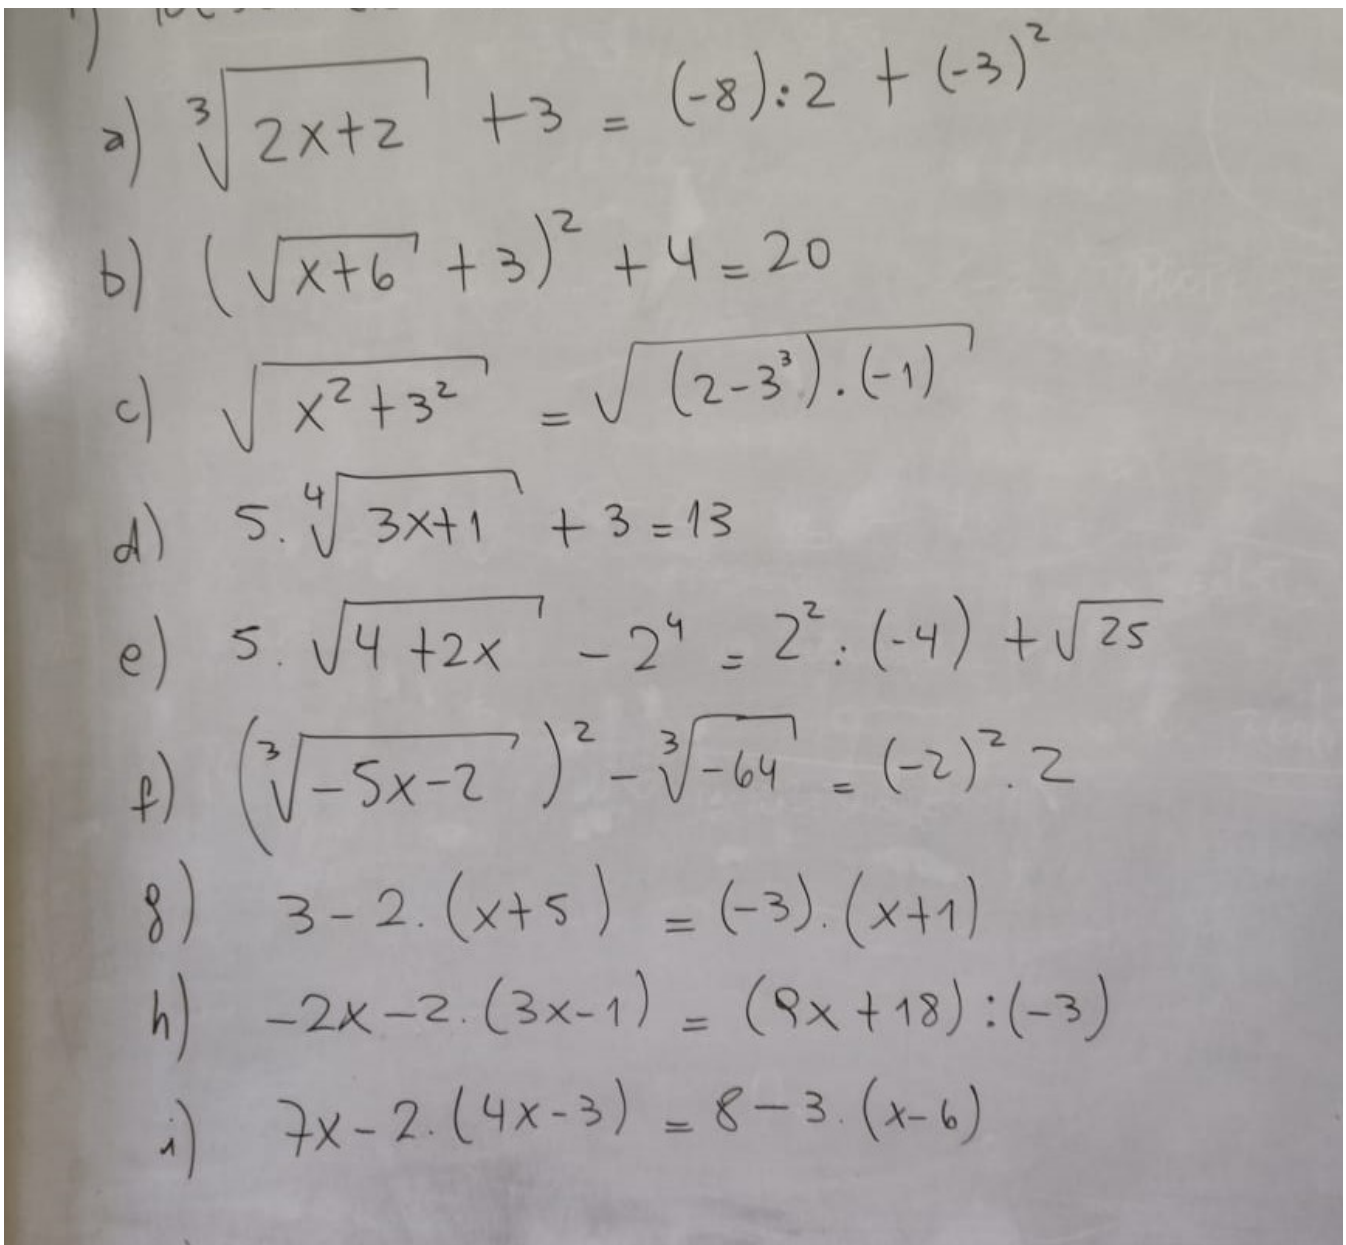 a) ∛(2x+2) + 3 = (-8):2 + (-3)²
b) (√(x+6) + 3)² + 4 = 20
c) √(x² + 3²) = √((2-3³).(-1))
d) 5.∜(3x+1) + 3 = 13
e) 5.√(4+2x) - 2⁴ = 2²:(-4) + √25
f) (∛(-5x-2))² - ∛(-64) = (-2)².2
g) 3-2.(x+5) = (-3).(x+1)
h) -2x-2.(3x-1) = (9x+18):(-3)
i) 7x-2.(4x-3) = 8-3.(x-6)